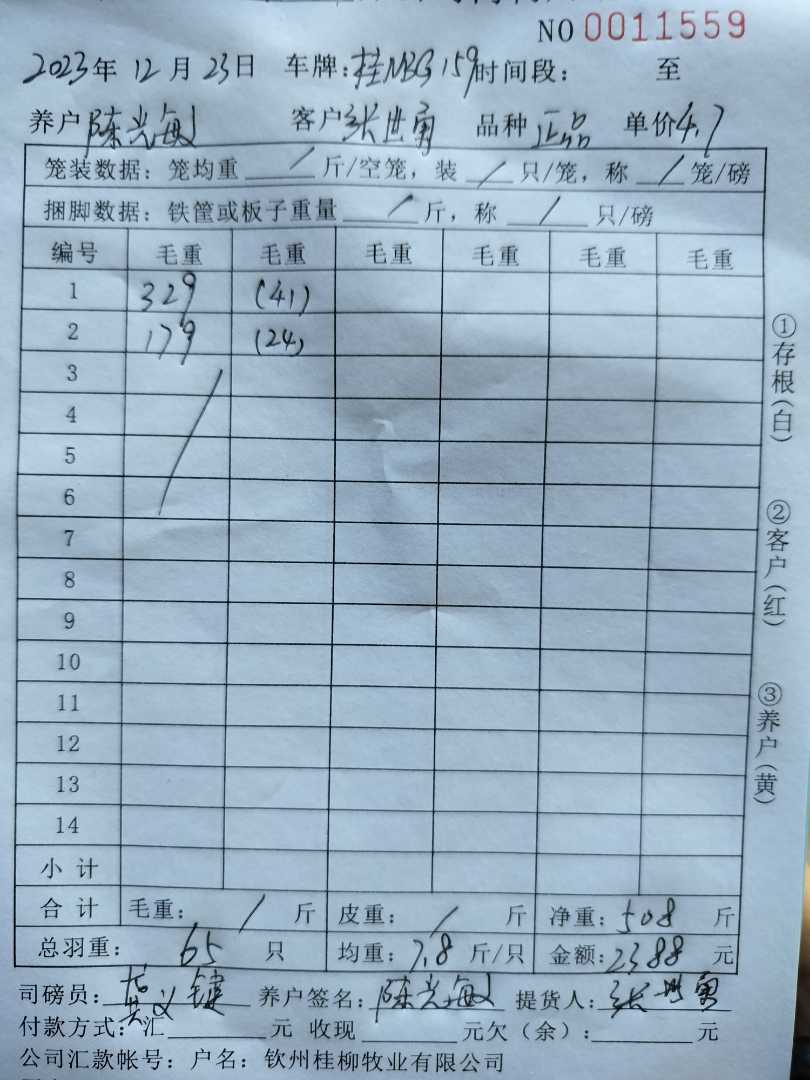 NO 0011559
2023年 12月 23日 车牌:桂NBG159时间段: 至
养户 陈光敏 客户 张世勇 品种 正品 单价4.7
笼装数据: 笼均重 / 斤/空笼, 装 / 只/笼, 称 / 笼/磅
捆脚数据: 铁筐或板子重量 / 斤, 称 / 只/磅
编号 毛重 毛重 毛重 毛重 毛重 毛重
1 329 (41)
2 179 (24)
3
4
5
6
7
8
9
10
11
12
13
14
小计
合计 毛重: / 斤 皮重: / 斤 净重:508 斤
总羽重: 65 只 均重:7.8 斤/只 金额:2388 元
司磅员: 义键 养户签名: 陈光敏 提货人: 张世勇
付款方式: 汇 元 收现 元欠(余): 元
公司汇款帐号: 户名: 钦州桂柳牧业有限公司
①存根(白)
②客户(红)
③养户(黄)